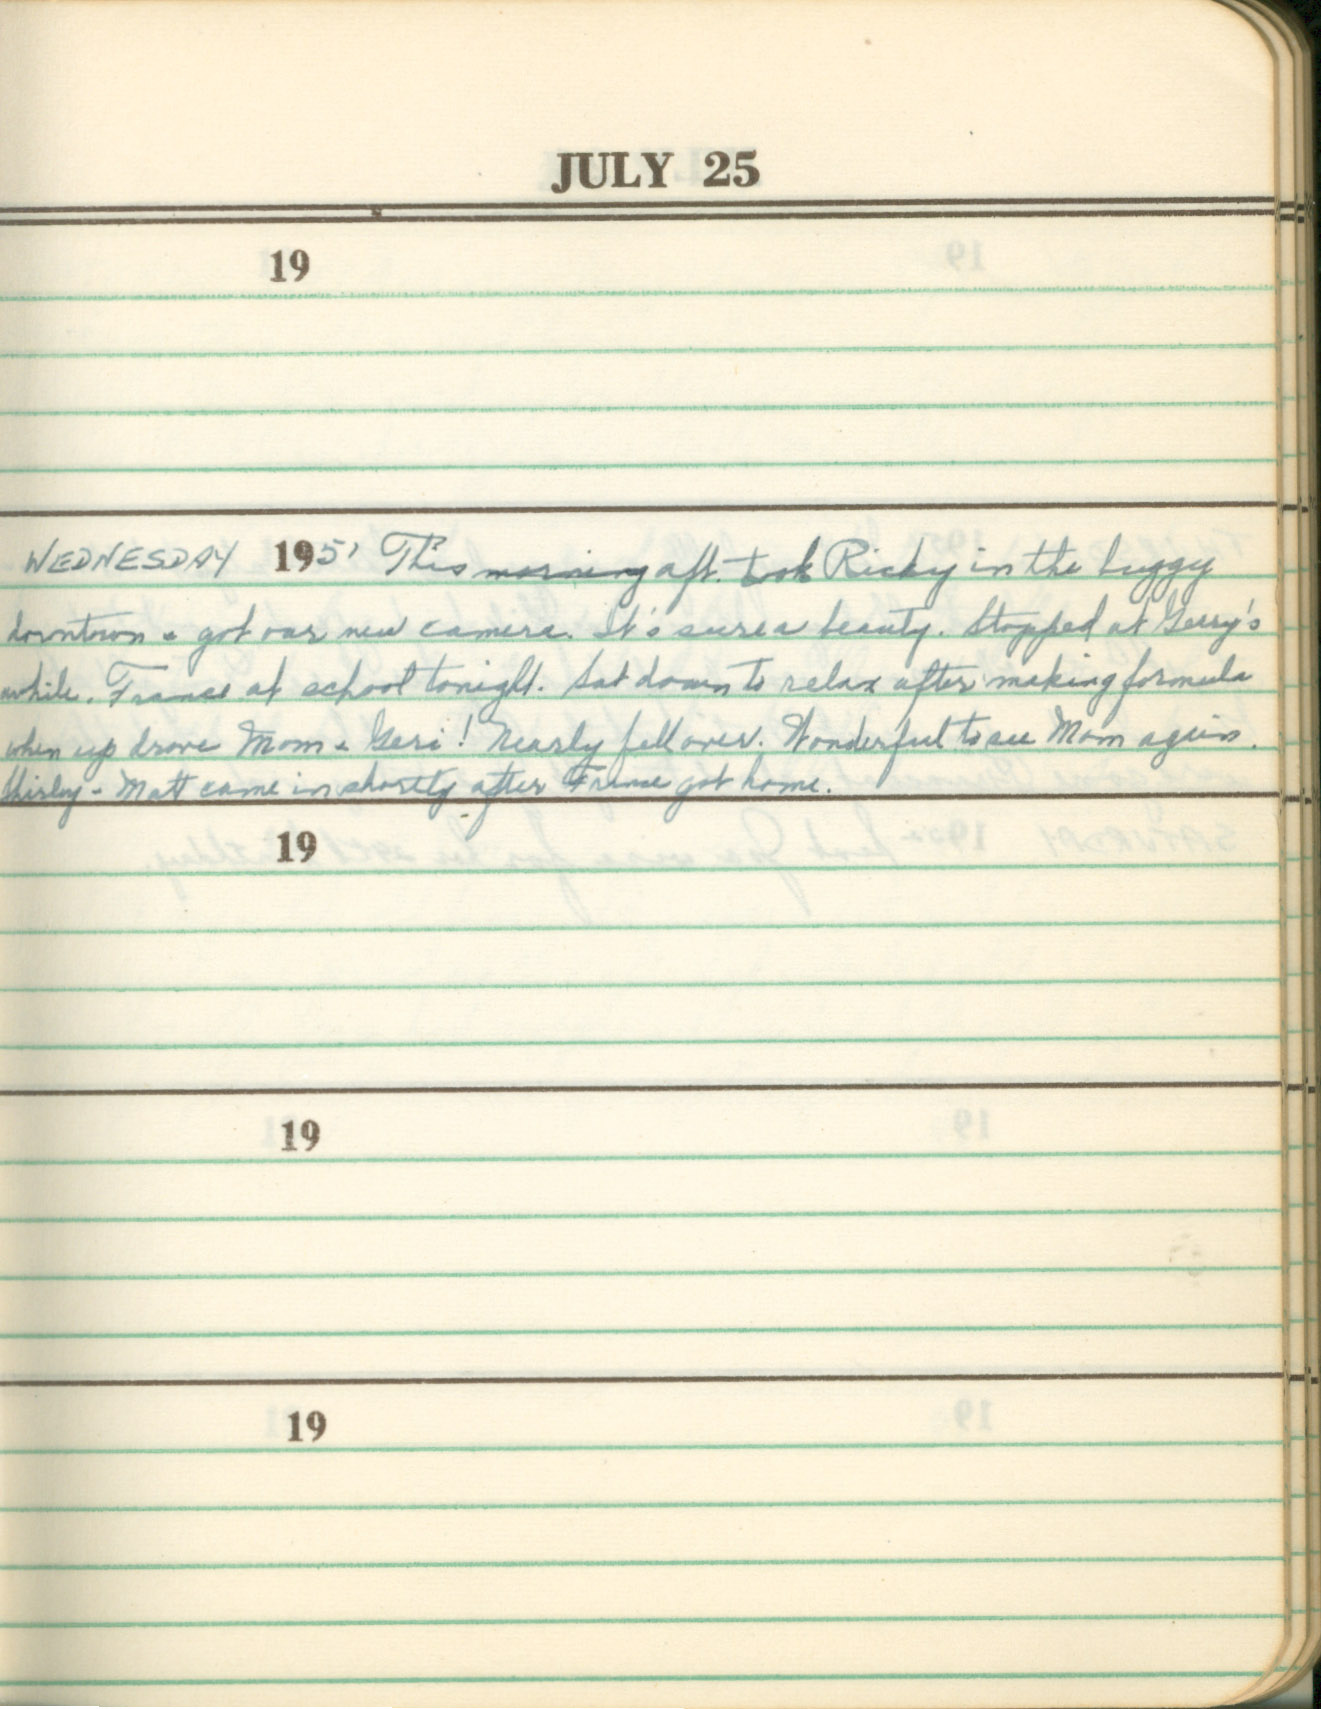 JULY 25
19
WEDNESDAY 1951 This morning aft. took Ricky in the buggy
downtown & got our new camera. It's sure a beauty. Stopped at Gerry's
awhile. France at school tonight. Sat down to relax after making formula
when up drove Mom & Geri! Nearly fell over. Wonderful to see Mom again.
Shirley - Matt came in shortly after France got home.
19
19
19